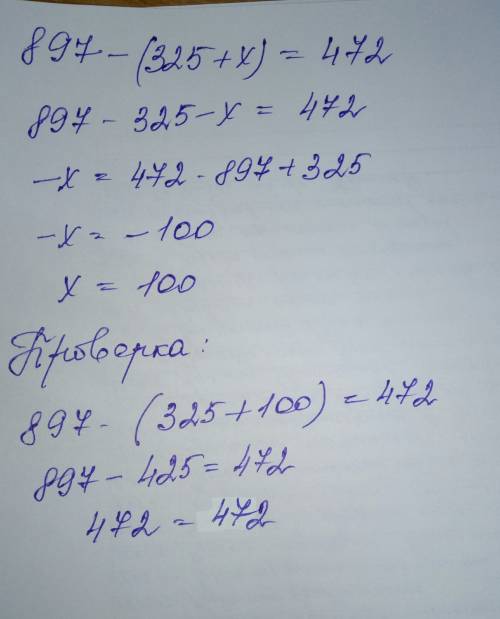 897 - (325 + x) = 472
897 - 325 - x = 472
-x = 472 - 897 + 325
-x = -100
x = 100
Проверка:
897 - (325 + 100) = 472
897 - 425 = 472
472 = 472